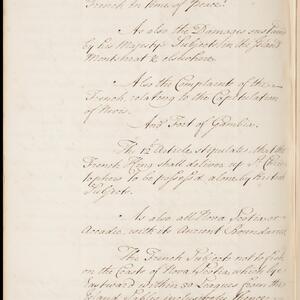 French in time of Peace.
As also the Damages sustained
by his Majestys Subjects in the Island
Montserat & elsewhere.
Also the Complaint of the
French, relating to the Capitulation
of Nevis.
And Fort of Gambia.
The 12th Article stipulates, that the
French King shall deliver up St. Chris-
tophers to be possessed alone by British
Subjects.
As also all Nova Scotia or
Accadie, with its Ancient Boundaries.
The French Subjects not to fish
on the Coasts of Nova Scotia, which lye
Eastward within 30 Leagues from the
Island Sables inclusively thence